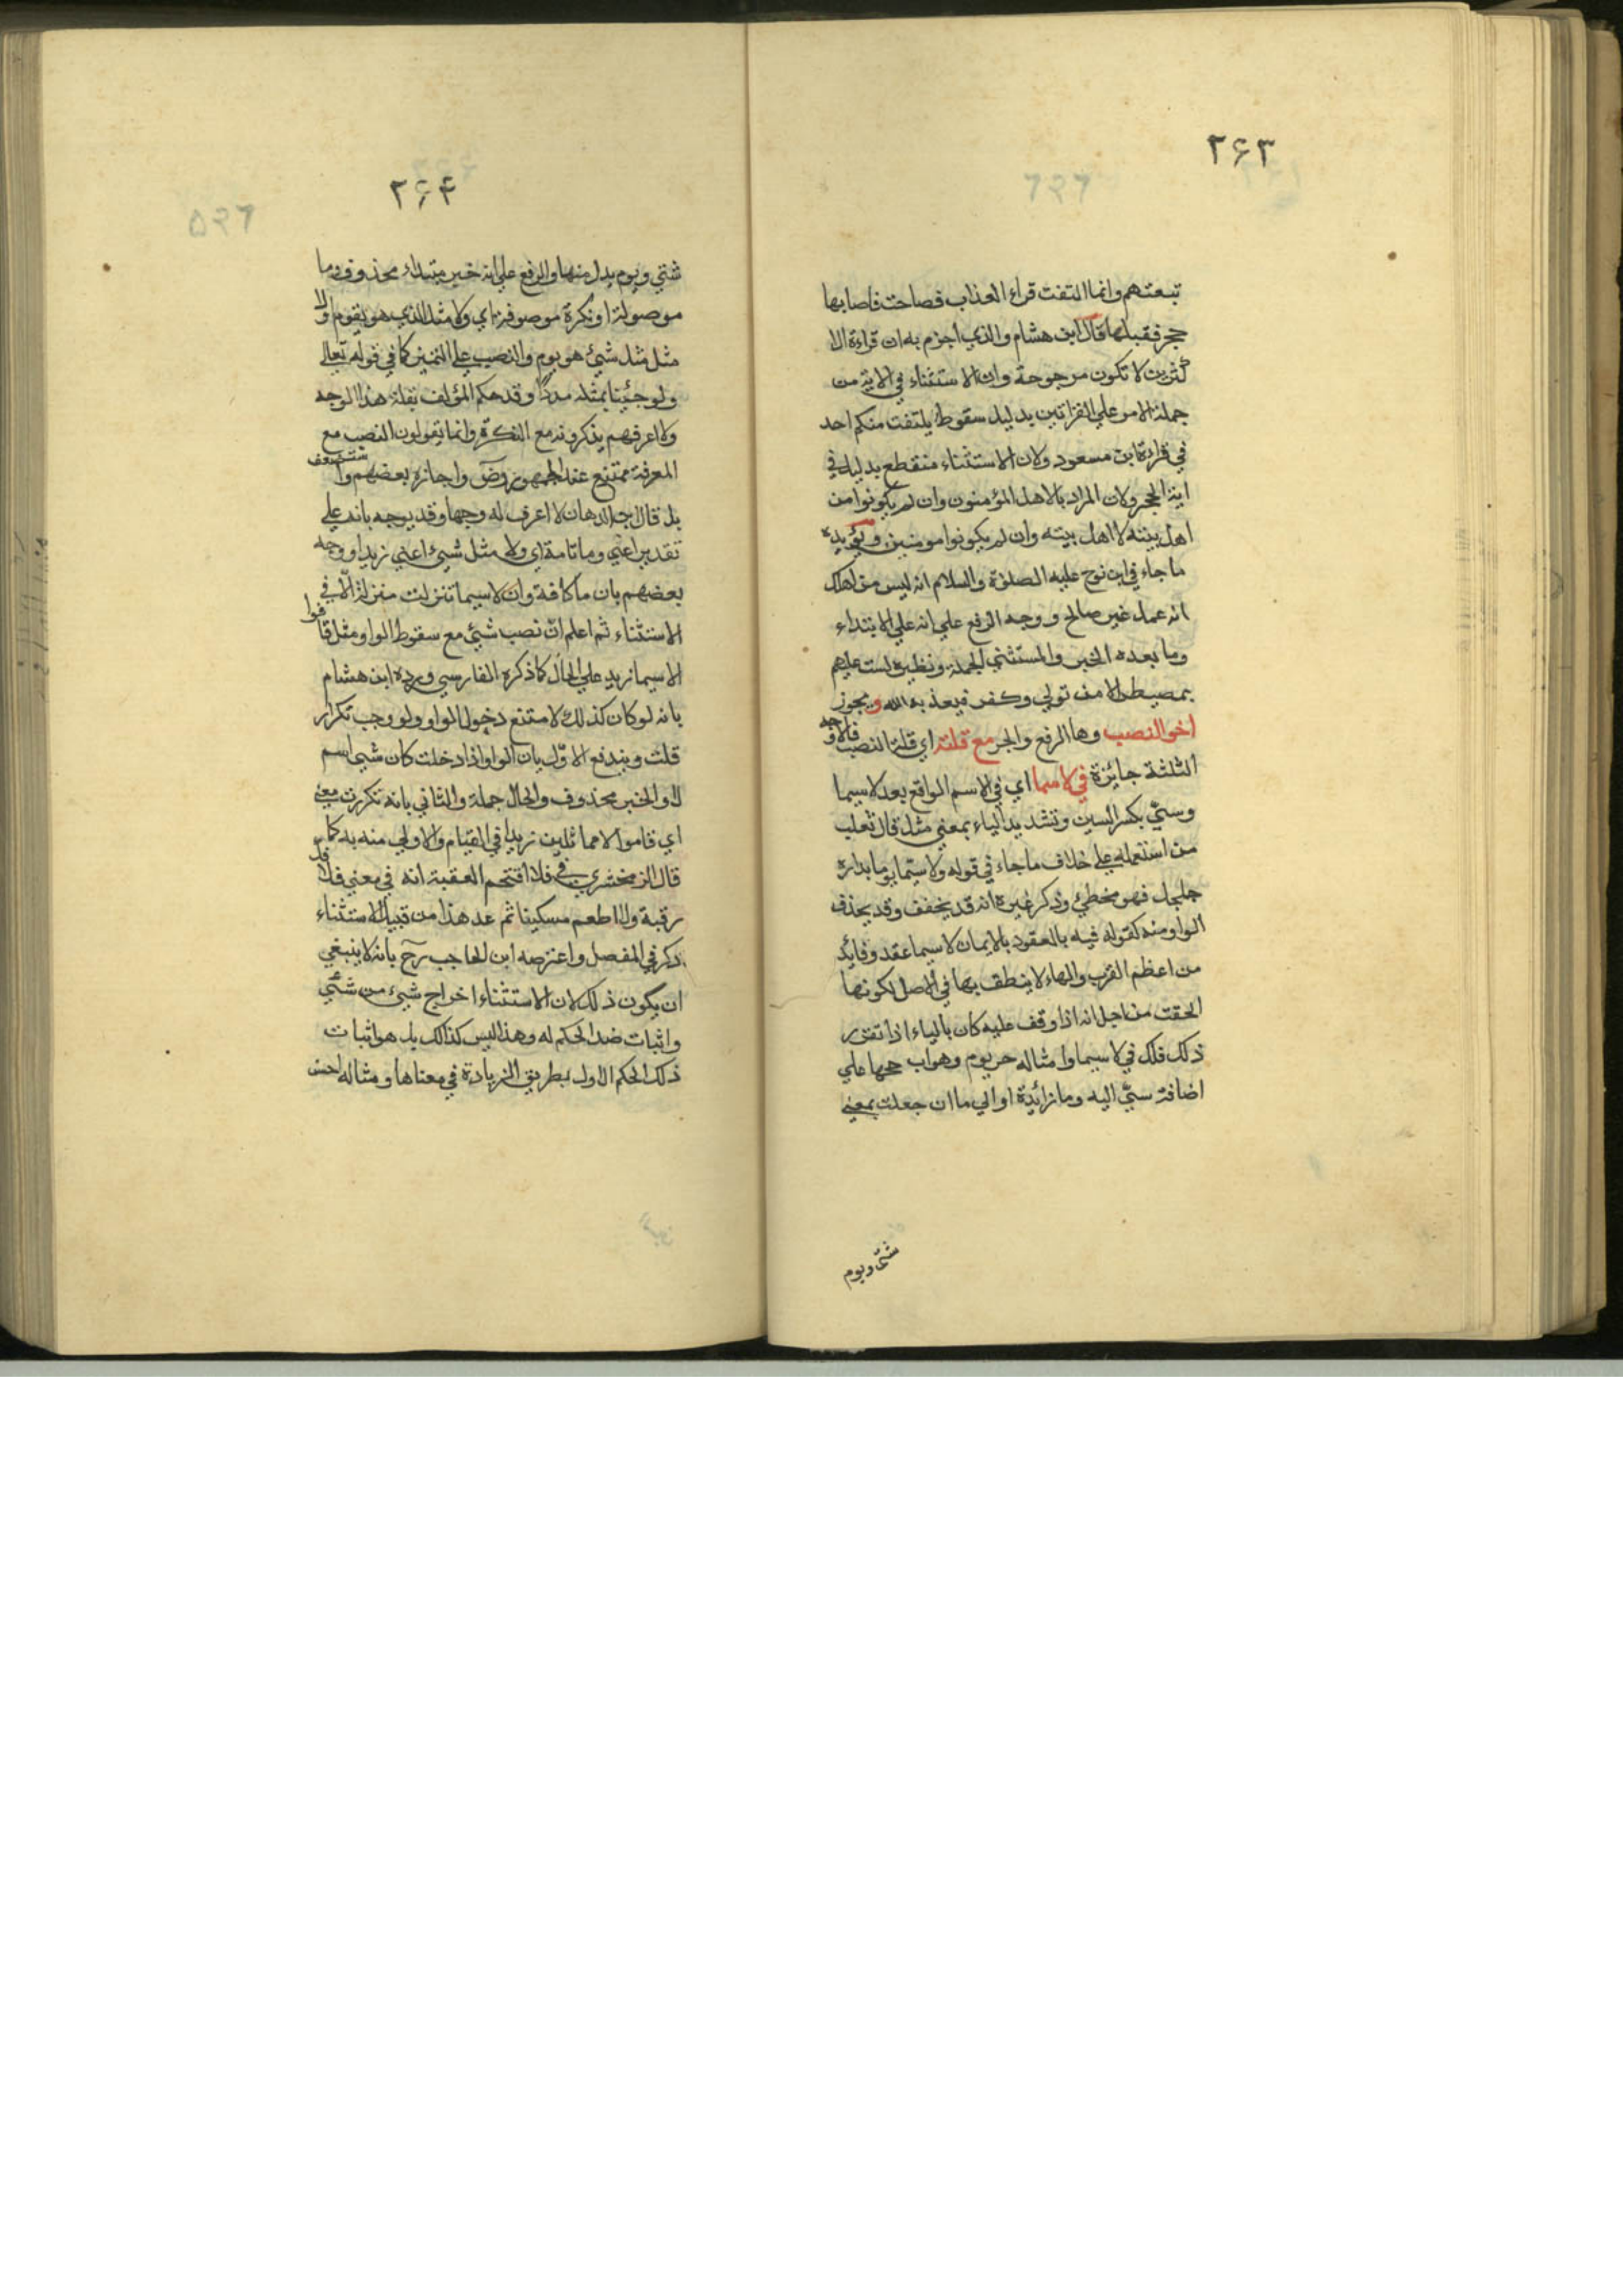 ۲۶۳
تبعتهم وانما التفت قراء العذاب فصاحت فاصابها
حجر فقبلها قال ابن هشام والذي اجزم به ان قراءة الا
كثرين لا تكون مرجوحة وان الاستثناء في الاية من
جملة الامر علي القراتين بدليل سقوط يلتفت منكم احد
في قراءة ابن مسعود ولان الاستثناء منقطع بدليل في
اية الحجر ولان المراد بالاهل المؤمنون وان لم يكونوا من
اهل بيته لا اهل بيته وان لم يكونوا مومنين ويؤيده
ما جاء في ابن نوح عليه الصلوة والسلام انه ليس من اهلك
انه عمل غير صالح ووجه الرفع علي انه علي الابتداء
وما بعده الخبر والمستثني الجملة ونظيره لست عليهم
بمصيطر الا من تولي وكفر فيعذبه الله ويجوز
اخو النصب وها الرفع والجر مع قلته اي قلة النصب فالاوجه
الثلثة جائزة في لاسيما اي في الاسم الواقع بعد لاسيما
وسيّ بكسر السين وتشديد الياء بمعني مثل قال ثعلب
من استعمله علي خلاف ما جاء في قوله ولا سيّما يوما بداره
جلجل فهو مخطئ وذكر غيره انه قد يخفف وقد يحذف
الواو منه كقوله فيه بالعقود بالايمان لاسيما عقد وفائد
من اعظم القرب والهاء لا ينطق بها في الاصل لكونها
الحقت من اجل انه اذا وقف عليه كان بالياء اذا تقرر
ذلك فلك في لاسيما وامثاله جر يوم وهو ارجحها علي
اضافة سيّ اليه وما زائدة او الي ما ان جعلت بمعني
شئ ويوم
۲۶۴
شئي ويوم بدل منها والرفع علي انه خبر مبتداء محذوف وما
موصولة او نكرة موصوفة اي ولا مثل الذي هو يقوم اولا
مثل مثل شيئ هو يوم والنصب علي التمييز كما في قوله تعالي
ولو جئنا بمثله مددًا وقد حكم المؤلف بقلة هذا الوجه
ولا اعرفهم يذكرونه مع النكرة وانما يقولون النصب مع
المعرفة ممتنع عند الجمهور وض واجازه بعضهم واستضعف
بل قال بن الدهان لا اعرف له وجها وقد يوجه بانه علي
تقدير اعني وما تامة اي ولا مثل شيئ اعني زيدا ووجه
بعضهم بان ما كافة وان لاسيما تنزلت منزلة الّا في
الاستثناء ثم اعلم انّ نصب شيئ مع سقوط الواو مثل قاموا
لاسيما زيد علي الحال كما ذكره الفارسي ورده ابن هشام
بانه لو كان كذلك لامتنع دخول الواو ولوجب تكرار
قلت ويندفع الاوّل بان الواو اذا دخلت كان شيئ اسم
لا والخبر محذوف والحال جملة والثاني بانه تكررت معني
اي قاموا لا مماثلين زيدا في القيام ولا اولي منه به كما
قال الزمخشري في فلا اقتحم العقبة انه في معني فلا فك
رقبة ولا اطعم مسكينا ثم عد هذا من قبيل الاستثناء
ذكر في المفصل واعترضه ابن الحاجب رح بانه لا ينبغي
ان يكون ذلك لان الاستثناء اخراج شيئ من شئي
واثبات ضد الحكم له وهذا ليس كذالك بل هو اثبات
ذلك الحكم الاول بطريق الزيادة في معناها ومثاله احسن